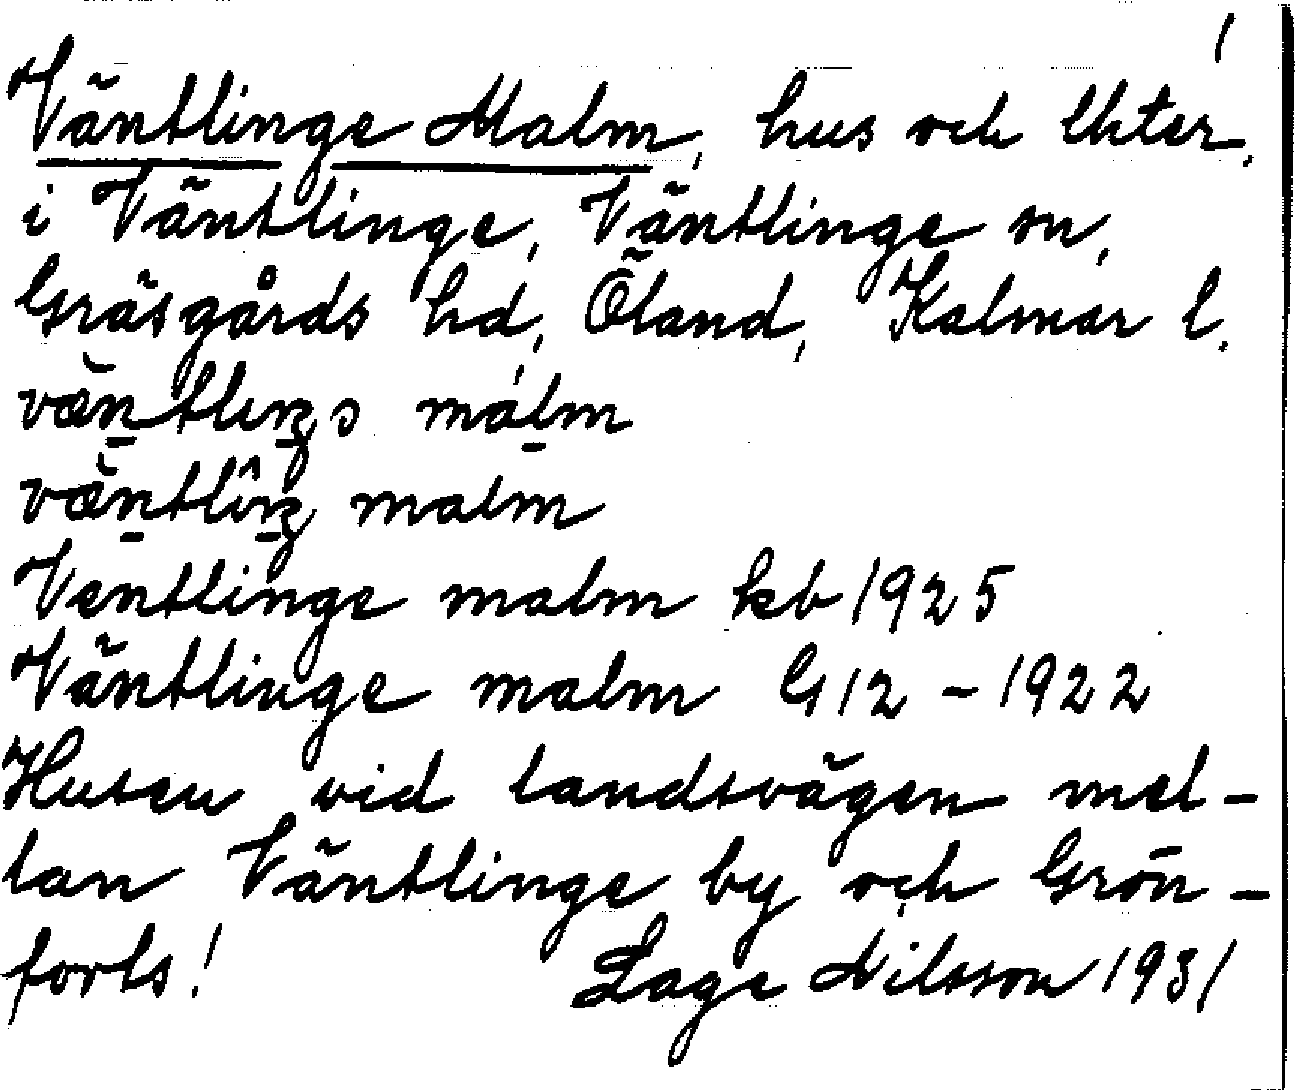 1
Väntlinge Malm, hus och lhter.
i Väntlinge, Väntlinge sn,
Gräsgårds hd, Öland, Kalmar l.
malm
malm
Ventlinge malm kb 1925
Väntlinge malm G12 - 1922
Husen vid landsvägen mel-
lan Väntlinge by och Grön-
forts! Lage Nilsson 1931